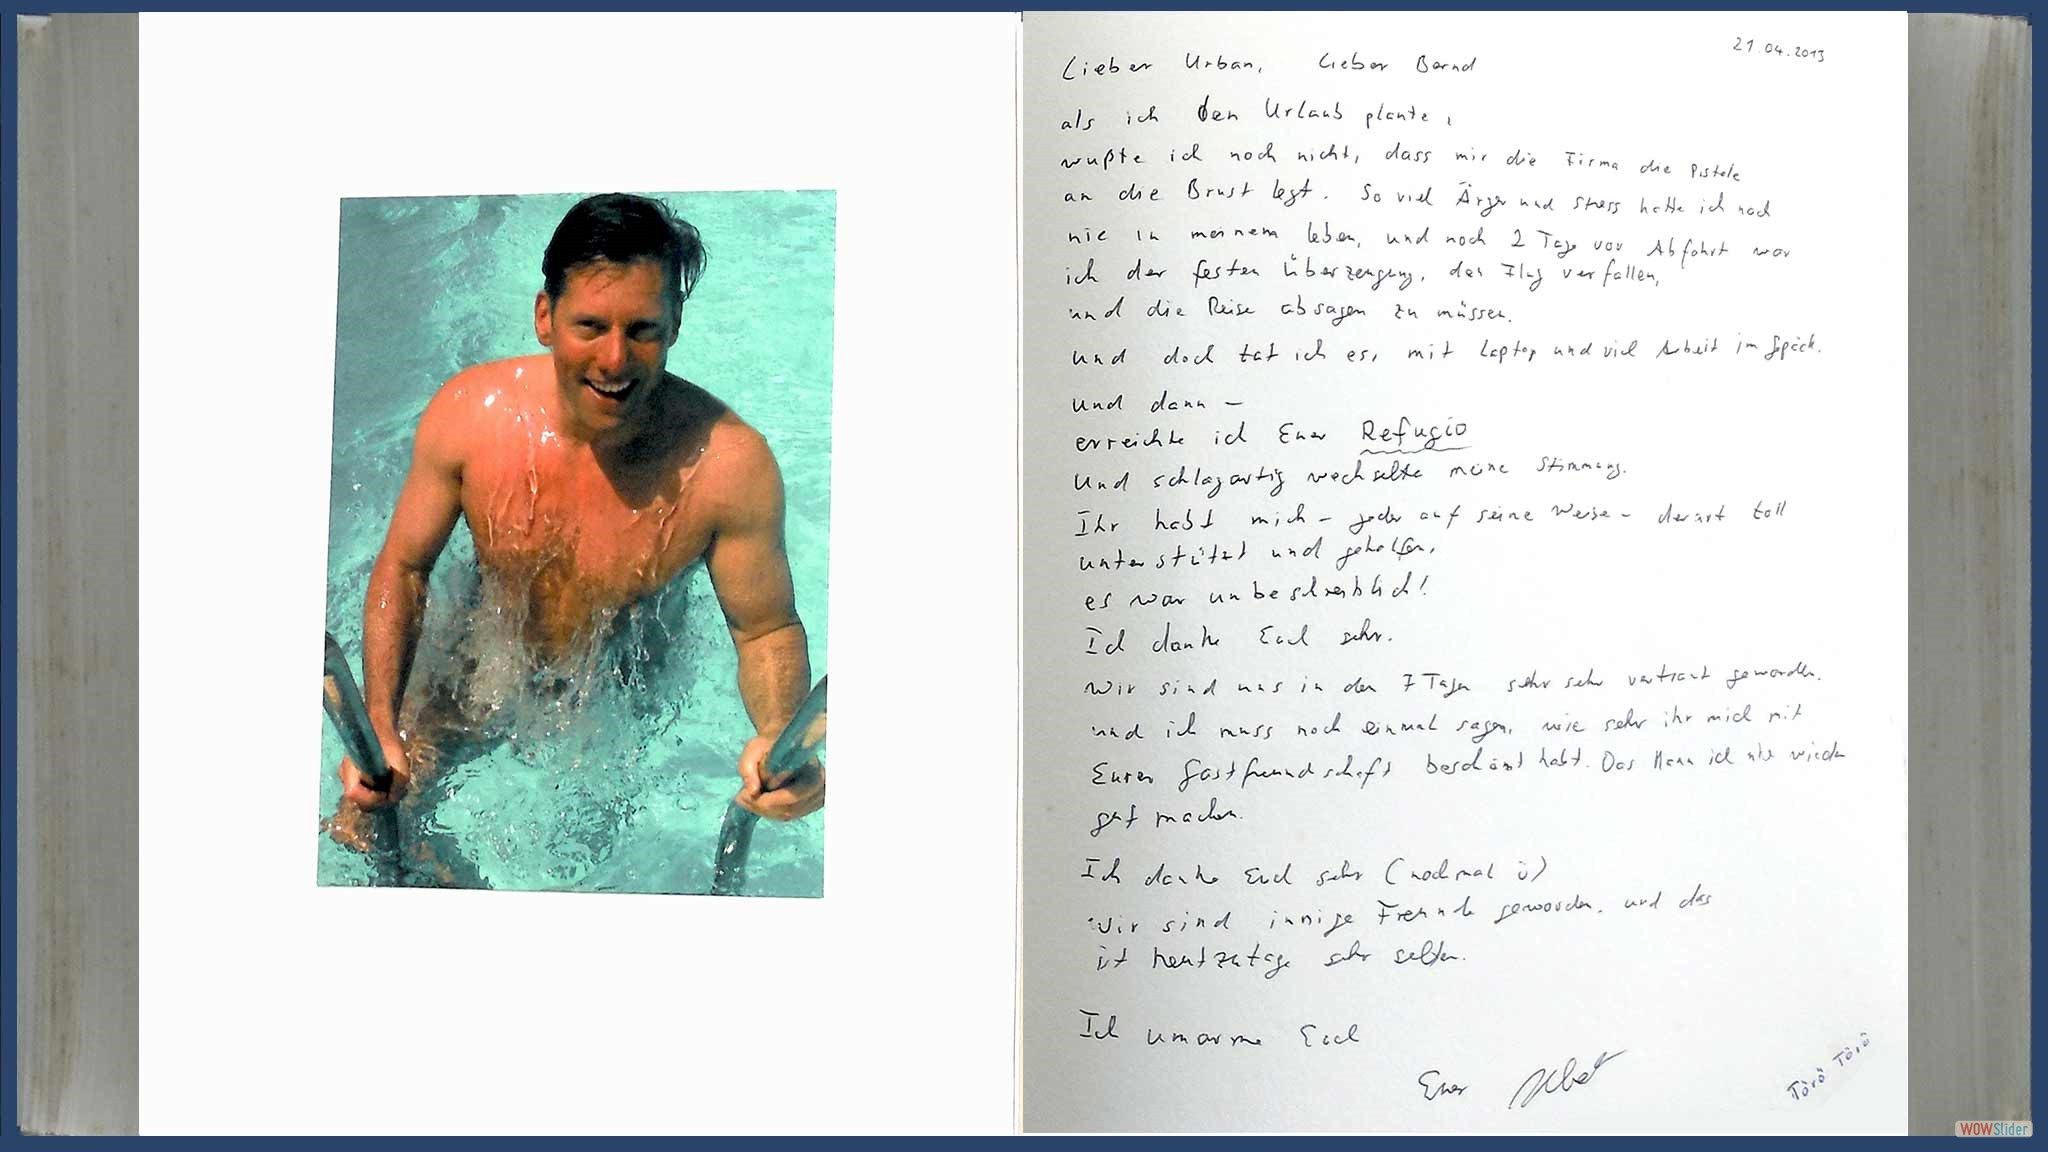 21.04.2013
Lieber Urban, Lieber Bernd
als ich den Urlaub plante,
wußte ich noch nicht, dass mir die Firma die Pistole
an die Brust legt. So viel Ärger und Stress hatte ich noch
nie in meinem Leben, und noch 2 Tage vor Abfahrt war
ich der festen Überzeugung, den Flug verfallen,
und die Reise absagen zu müssen.
und doch tat ich es, mit Laptop und viel Arbeit im Gepäck.
und dann –
erreichte ich Euer Refugio
Und schlagartig wechselte meine Stimmung.
Ihr habt mich – jeder auf seine Weise – derart toll
unterstützt und geholfen,
es war unbeschreiblich!
Ich danke Euch sehr.
Wir sind uns in den 7 Tagen sehr sehr vertraut geworden,
und ich muss noch einmal sagen, wie sehr ihr mich mit
Eurer Gastfreundschaft beschämt habt. Das kann ich nie wieder
gut machen.
Ich danke Euch sehr (nochmal ü)
Wir sind innige Freunde geworden, und das
ist heutzutage sehr selten.
Ich umarme Euch
Euer
Törö Törö
WOWSlider